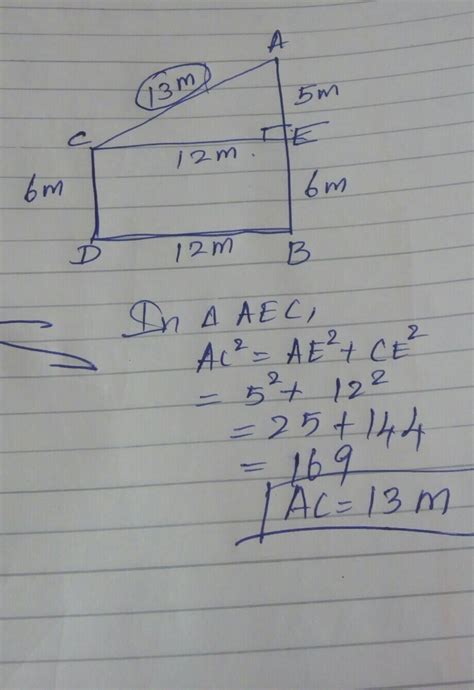 A
13m
5m
C
E
12m.
6m
6m
D
12m
B
In Δ AEC,
AC² = AE² + CE²
= 5² + 12²
= 25 + 144
= 169
AC = 13 m